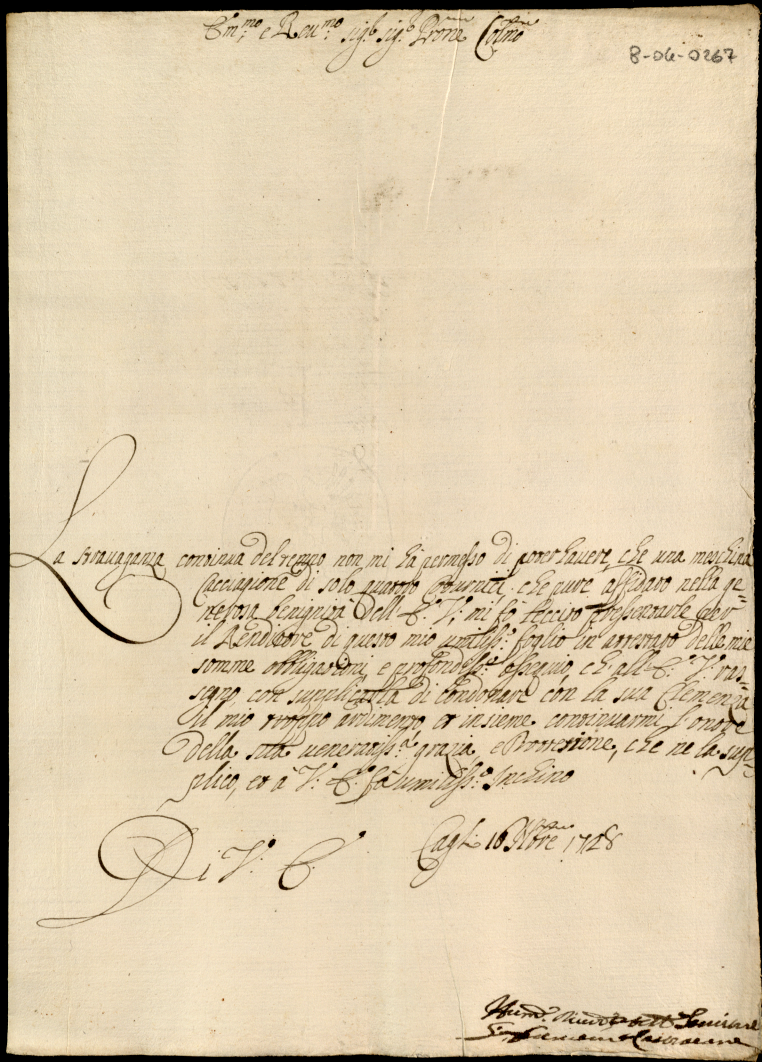 Em.mo e Reu.mo sig.r sig.r Prone Colmo
8-06-0267
La strauaganza continua del tempo non mi hà permesso di poter hauere, che una meschina
Cacciagione di solo quattro che pure affidato nella ge=
nerosa benignità dell' E. V. mi fò presentarle per
il Renditore di questo mio umiliss.o foglio in attestato delle mie
somme obbligazioni, e profondiss.o ossequio, che all' E. V. ras=
segno, con supplicarla di condonare con la sua Clemenza
il mio troppo ardimento, et insieme continuarmi l'onore
della sua ueneratiss.a grazia, e Protezione, che ne la sup=
plico, et à V. E. fò umiliss.o Inchino
Cagli 16 1728
Di V. E.
Hum.o